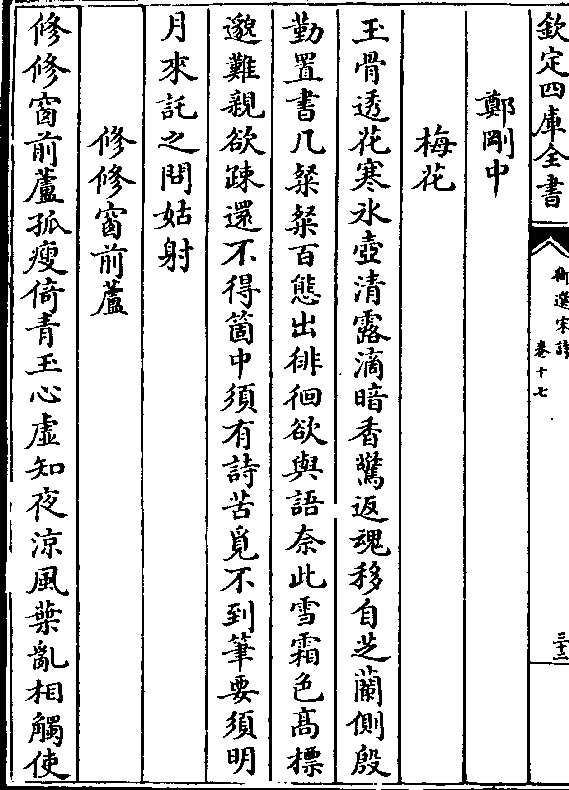 欽定四庫全書
御選宋詩
卷十七
三十二
鄭剛中
梅花
玉骨透花寒氷壺清露滴暗香驚返魂移自芝蘭側殷
勤置書几粲粲百態出徘徊欲與語奈此雪霜色髙標
邈難親欲踈還不得箇中須有詩苦覓不到筆要須明
月來託之問姑射
修修窗前蘆
修修窗前蘆孤瘦倚青玉心虛知夜涼風葉亂相觸使